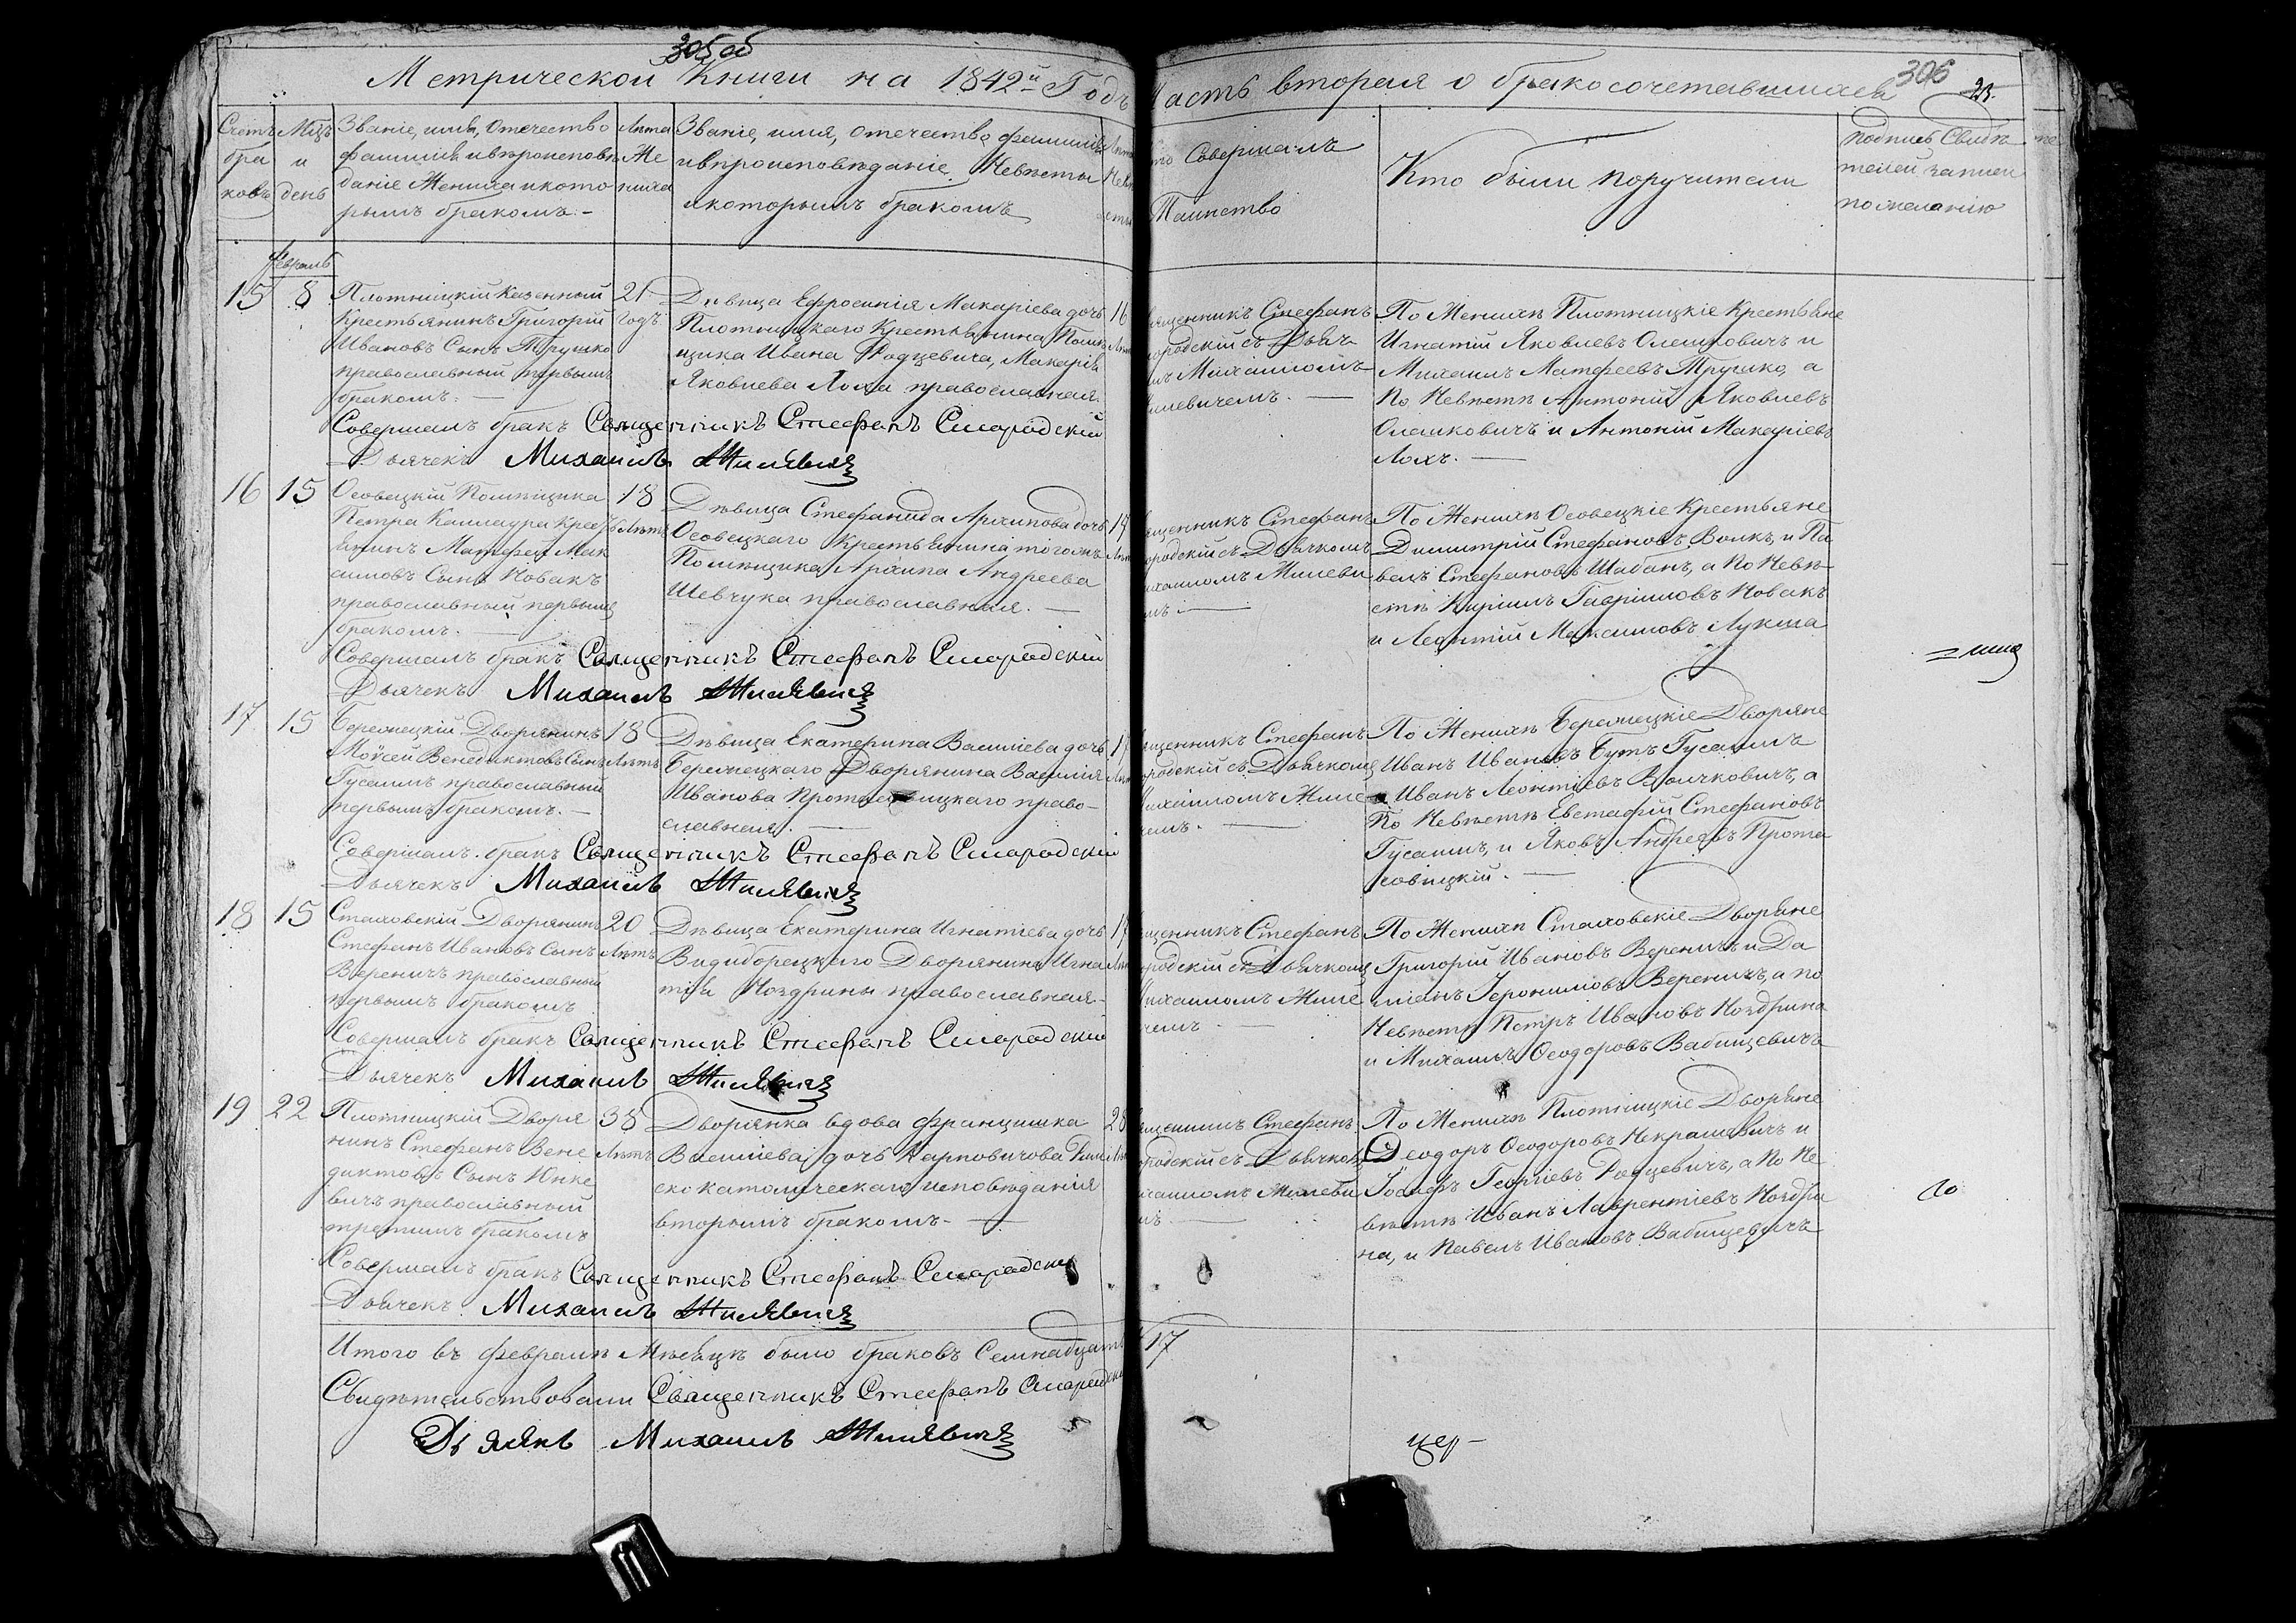 305 об
Метрической Книги на 1842й Годъ
Часть вторая о бракосочетавшихся
306
23.
Счетъ бра ковъ
Мцъ и день
Званіе, имя, отечество
фамилія и вѣроисповѣ
даніе Жениха и кото
рымъ бракомъ. –
Лѣта Же ниха
Званіе, имя, отечество фамилія
и вѣроисповѣданіе Невѣсты
и которымъ бракомъ
Совершалъ
Таинство
Кто были поручители
подпись Свидѣ
телей записи
по желанію
Февраль
15 8
Плотницкій Казенный
Крестьянинъ Григорій
Ивановъ Сынъ Трушко
православный первымъ
бракомъ. –
21 годъ
Дѣвица Ефросинія Макаріева дочь
Плотницкаго Крестьянина Помѣ
щика Ивана Родцевича, Макарія
Яковлева Лоха православная.
16
Священникъ Стефанъ
съ Дьяч
Михаиломъ
По Женихѣ Плотницкіе Крестьяне
Игнатій Яковлевъ Олешковичъ и
Михаилъ Матфеевъ Трушко, а
По Невѣстѣ Антоній Яковлевъ
Олешковичъ и Антоній Макаріевъ
Лохъ. –
Совершалъ бракъ Священникъ Стефанъ Смародскій
Дьячекъ Михаилъ Жилевич
16 15
Осовецкій Помѣщика
Петра Каллаура Крест
янинъ Матфей Мак
симовъ Сынъ Новакъ
православный первымъ
бракомъ. –
18 Лѣтъ
Дѣвица Стефанида Архипова дочь
Осовецкаго Крестьянина тогожъ
Помѣщика Архипа Андреева
Шевчука православная. –
19
Священникъ Стефанъ
съ Дьячкомъ
По Женихѣ Осовецкіе Крестьяне
Димитрій Стефановъ Волкъ, и Па
велъ Стефановъ Шабанъ, а По Невѣ
стѣ Кирилъ Гавріиловъ Новакъ
и Леонтій Максимовъ Лукша
Совершалъ бракъ Священникъ Стефанъ Смародскій
Дьячекъ Михаилъ Жилевич
17 15
Бережецкій Дворянинъ
Мойсей Венедиктовъ Сынъ
Гусаимъ православный
первымъ бракомъ. –
18 Лѣтъ
Дѣвица Екатерина Василіева дочь
Бережецкаго Дворянина Василія
Иванова право–
славная. –
17
Священникъ Стефанъ
съ Дьячкомъ
По Женихѣ Бережецкіе Дворяне
Иванъ Ивановъ Бутъ Гусаимъ
и Иванъ Леонтіевъ Воичковичъ, а
По Невѣстѣ Евстафій Стефановъ
Гусаимъ, и Яковъ Андреевъ Прота
совицкій. –
Совершалъ бракъ Священникъ Стефанъ Смародскій
Дьячекъ Михаилъ Жилевич
18 15
Стаховскій Дворянинъ
Стефанъ Ивановъ Сынъ
Вереничъ православный
первымъ бракомъ
20 Лѣтъ
Дѣвица Екатерина Игнатіева дочь
Видиборецкаго Дворянина Игна
тія Ноздрины православная.
17
Священникъ Стефанъ
съ Дьячкомъ
Михаиломъ Жиле
По Женихѣ Стаховскіе Дворяне
Григорій Ивановъ Вереничъ и Да
міанъ Іеронимовъ Вереничъ, а по
Невѣстѣ Петръ Ивановъ Ноздрина
и Михаилъ Ѳеодоровъ Вабищевичъ
Совершалъ бракъ Священникъ Стефанъ Смародскій
Дьячекъ Михаилъ Жилевич
19 22
Плотницкій Дворя
нинъ Стефанъ Вене
диктовъ Сынъ Юнке
вичъ православный
третимъ бракомъ
38 Лѣтъ
Дворянка вдова Францишка
Василіева дочь Карповичова Рим
скокатолическаго исповѣданія
вторымъ бракомъ. –
28
Стефанъ
съ Дьячкомъ
По Женихѣ Плотницкіе Дворяне
Ѳеодоръ Ѳеодоровъ Некрашевичъ и
Іосифъ Георгіевъ Родцевичъ, а По Не
вѣстѣ Иванъ Лаврентіевъ Ноздри
на, и Павелъ Ивановъ Вабищевичъ
Совершалъ бракъ Священникъ Стефанъ Смародскій
Дьячекъ Михаилъ Жилевич
Итого въ февралѣ Мѣсяцѣ было браковъ Семнадцать 17
Свидѣтельствовали Священникъ Стефанъ Смародскій
Дьячекъ Михаилъ Жилевич